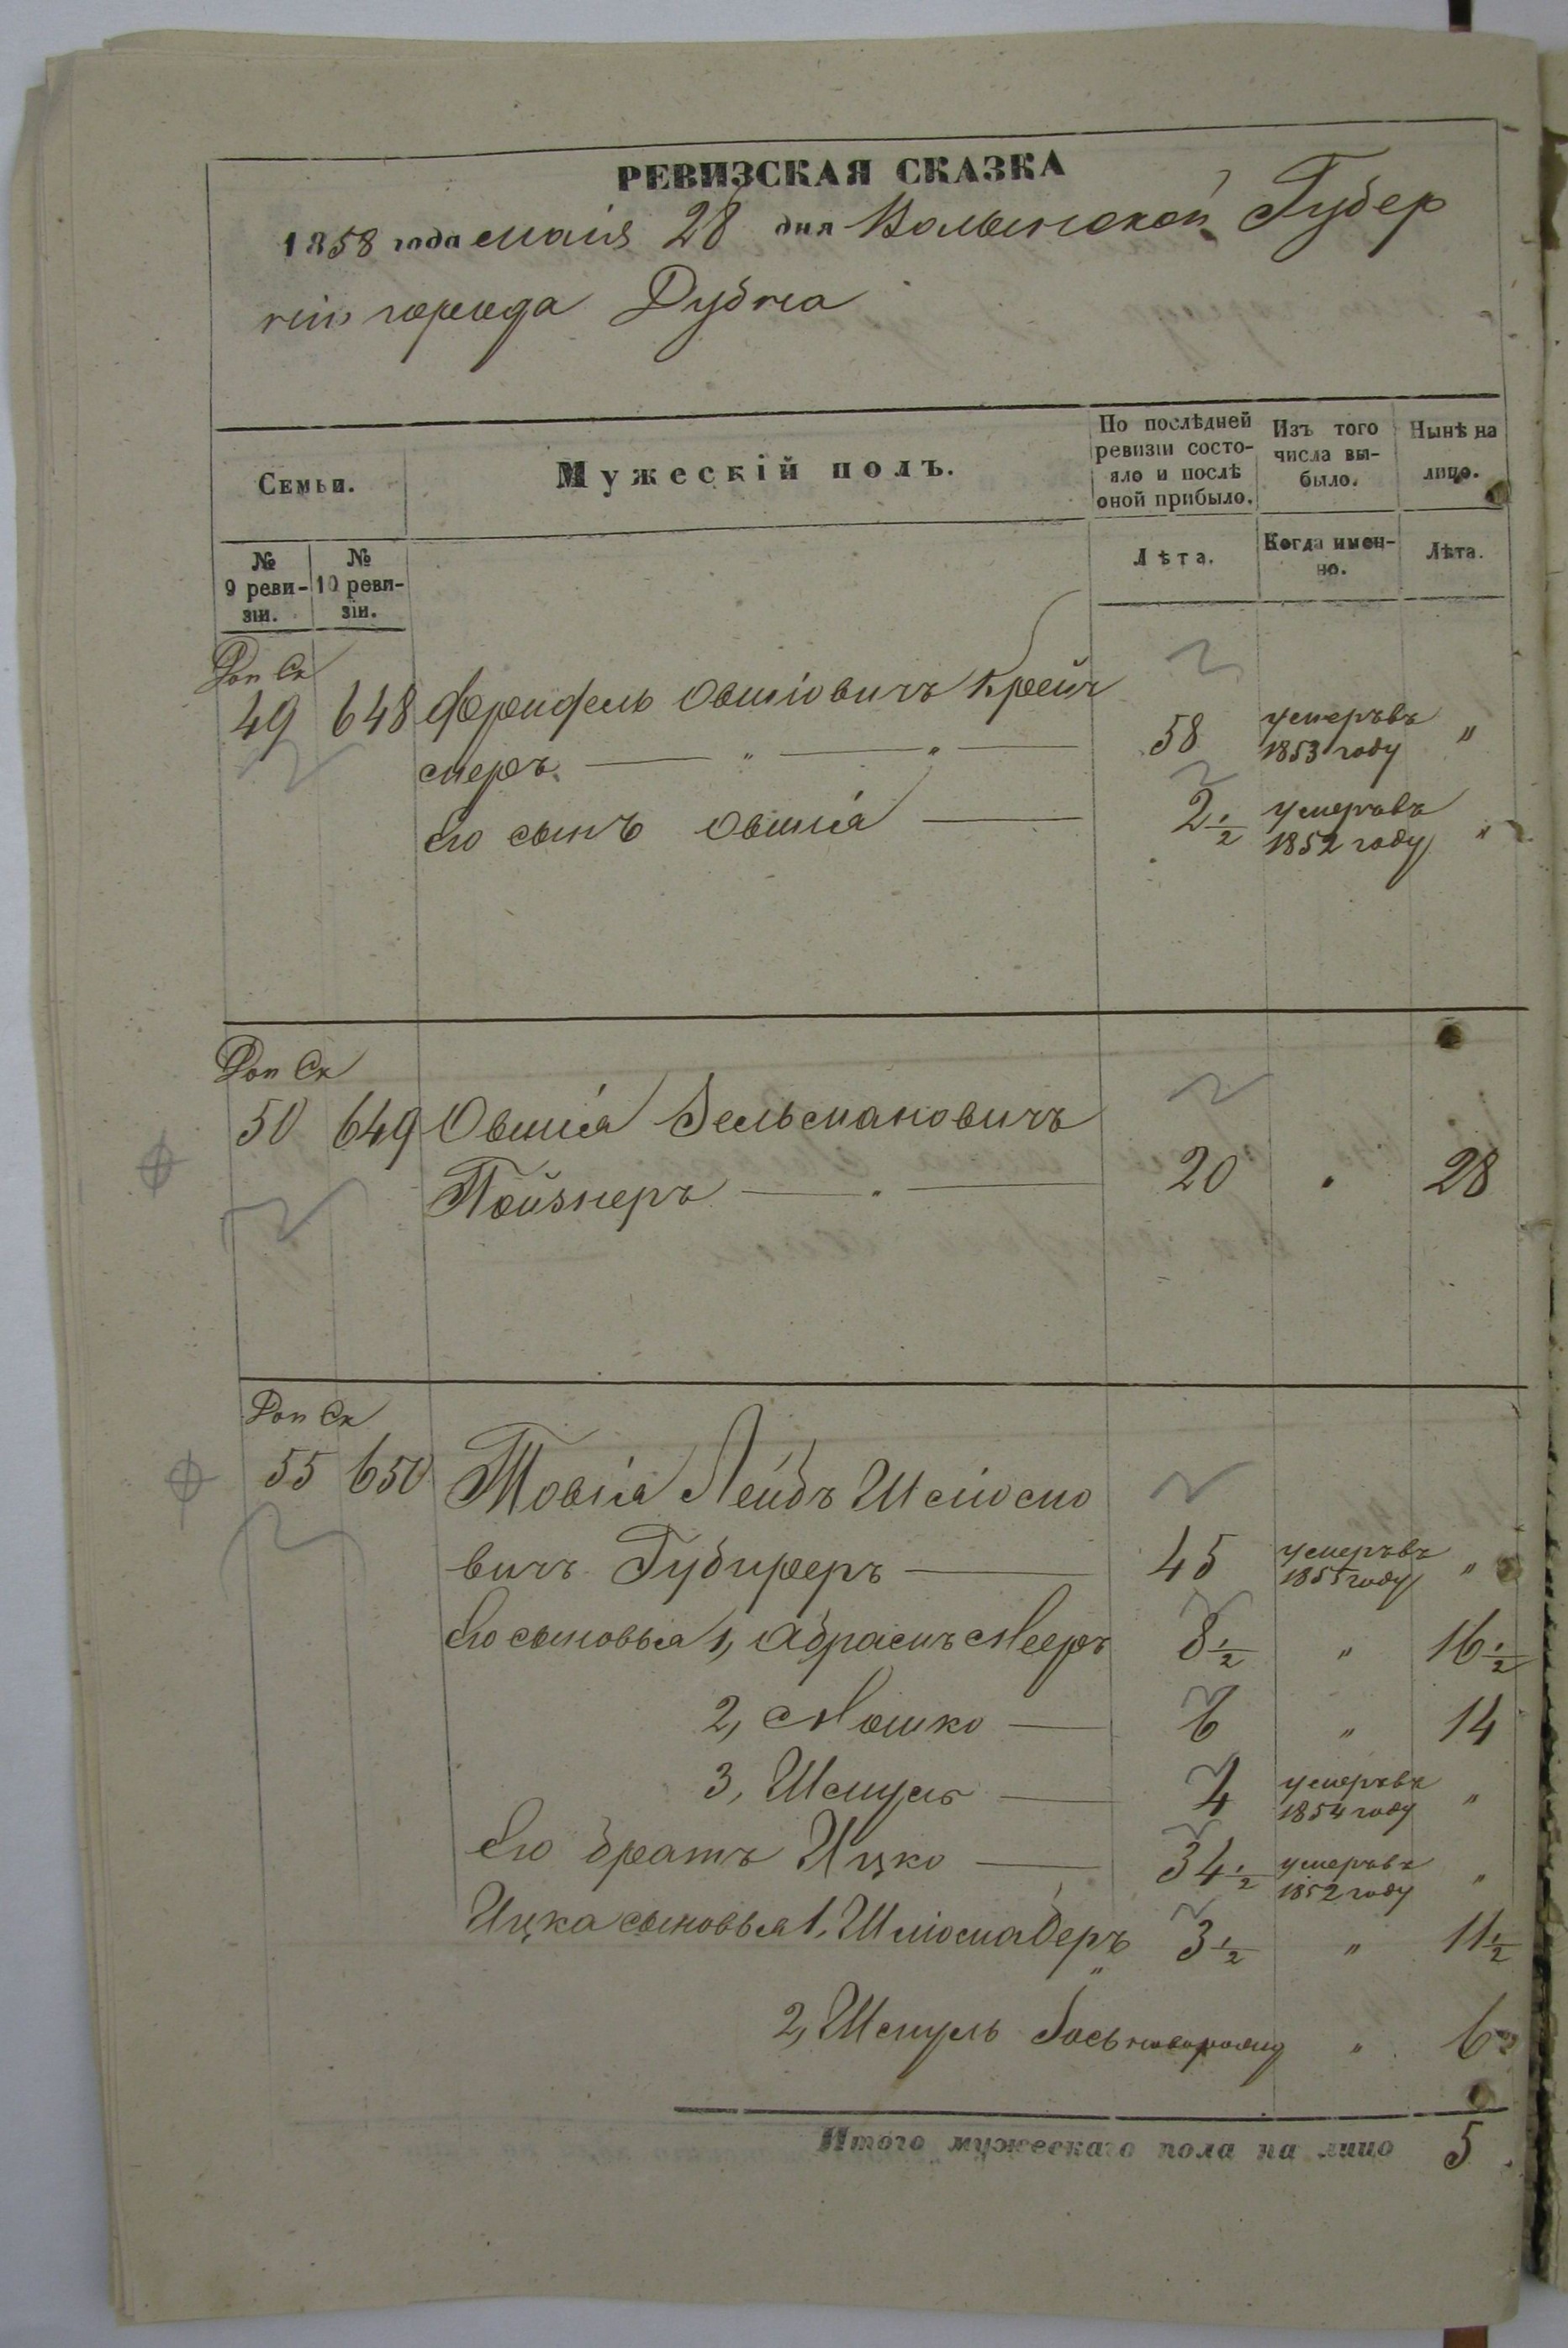 РЕВИЗСКАЯ СКАЗКА
1858 года маія 28 дня Волынской Губер
ніи города Дубна
Семьи.
Мужескій полъ.
По послѣдней ревизіи состо-
яло и послѣ оной прибыло.
Изъ того числа вы-
было.
Нынѣ на лицо.
№ 9 реви-
зіи.
№ 10 реви-
зіи.
Лѣта.
Когда имен-
но.
Лѣта.
Доп Ск
49 648 Овшіовичъ Крей
меръ — „ — „ — 58 умеръ въ 1853 году „
Его сынъ Овшіа — 2 1/2 умеръ въ 1852 году „
Доп Ск
50 649 Овшіа Зельмановичъ
Пойзнеръ — „ — 20 „ 28
Доп Ск
55 650 Товіа Лейбъ Шліомо
вичъ — 45 умеръ въ 1855 году „
Его сыновья 1, Абрамъ Мееръ 8 1/2 „ 16 1/2
2, Мошко — 6 „ 14
3, Шмуль — 4 умеръ въ 1854 году „
Его братъ Ицко — 34 1/2 умеръ въ 1852 году „
Ицка сыновья 1, Шліома Беръ 3 1/2 „ 11 1/2
2, Шмуль новорожд „ 6
Итого мужескаго пола на лицо 5